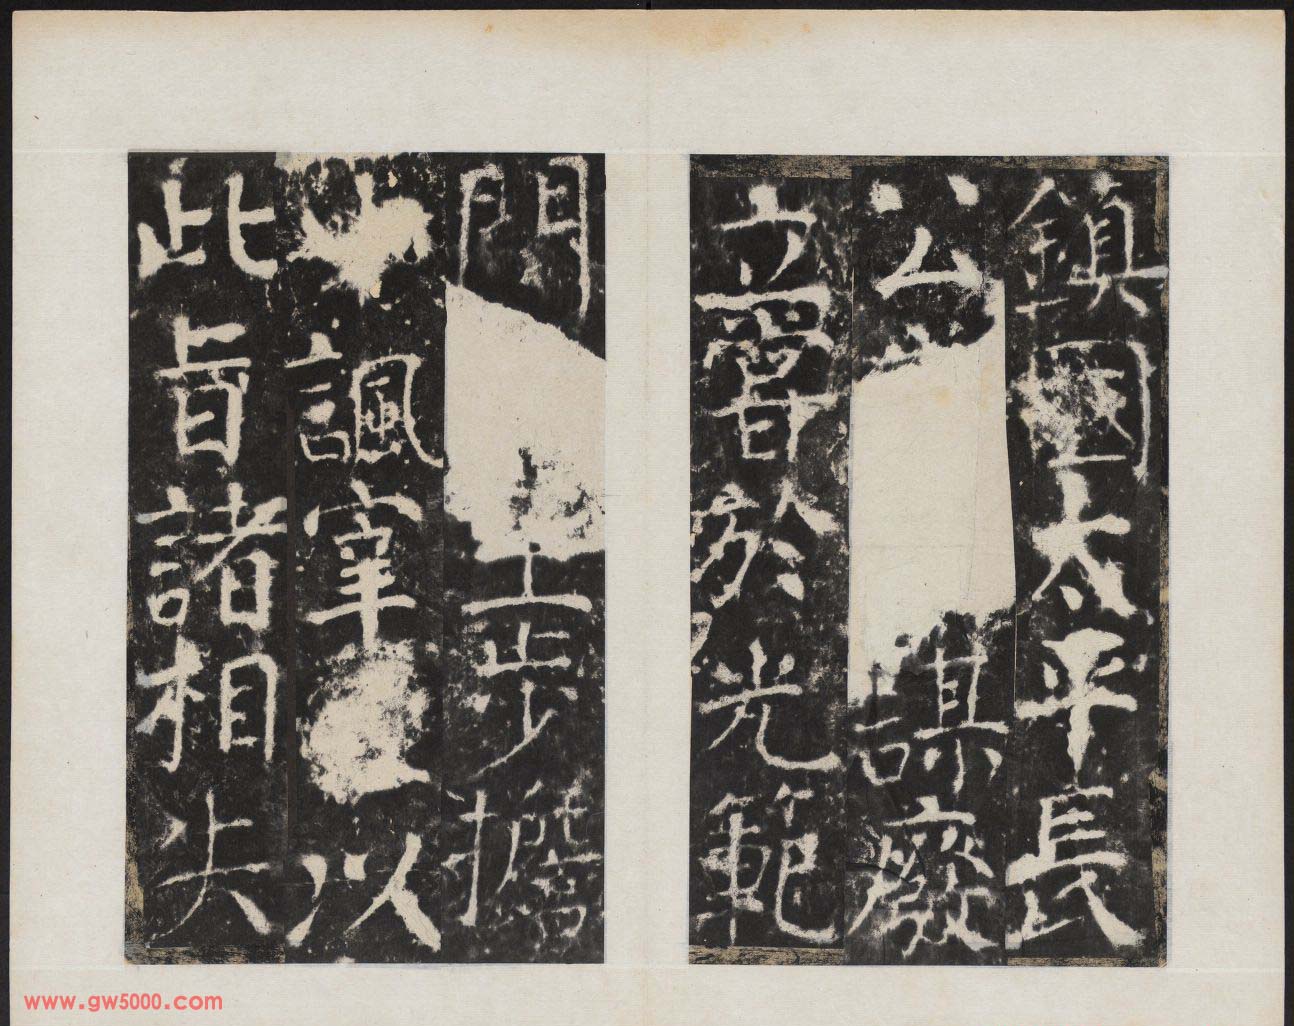 鎮國太平長
公謀廢
立嘗於光範
門步擔
諷宰以
此旨諸相失
www.gw5000.com